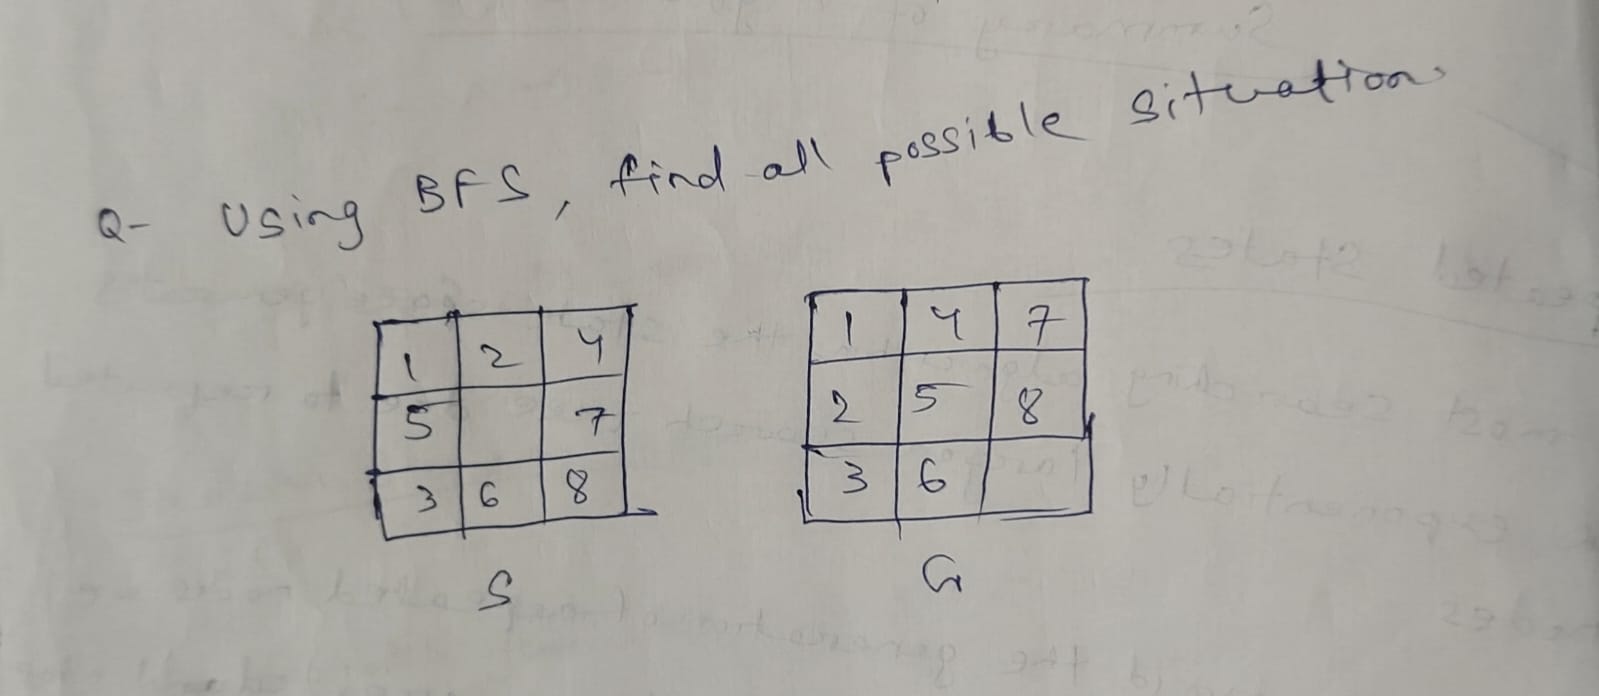 Q- Using BFS, find all possible situation
1 2 4
5 7
3 6 8
S
1 4 7
2 5 8
3 6
G